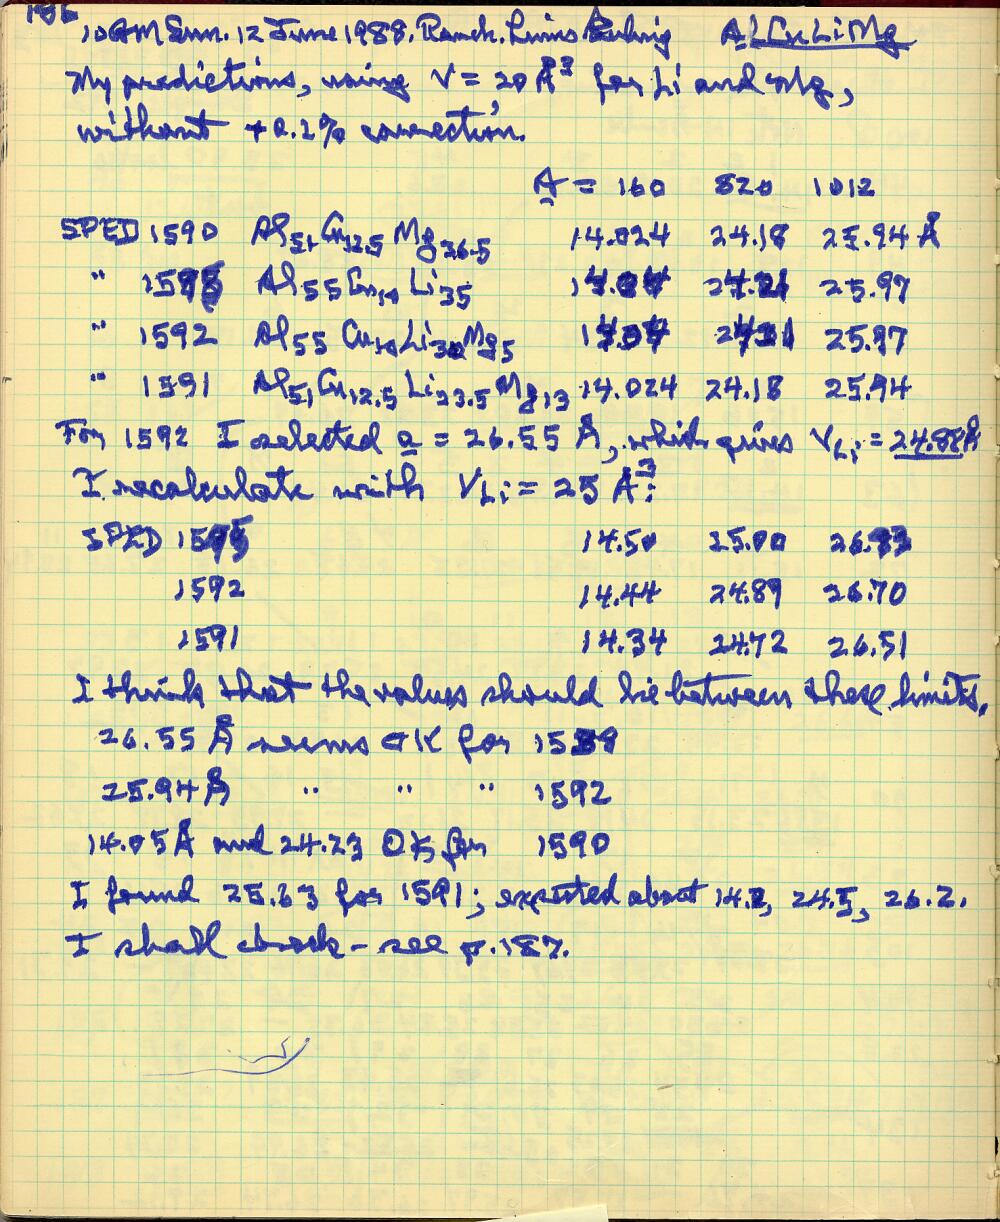 186
10 AM Sun. 12 June 1988. Ranch. Linus Pauling AlCuLiMg
My predictions, using V = 20 Å³ for Li and Mg,
without +0.2% correction.
A = 160 820 1012
SPED 1590 Al51Cu12.5Mg36.5 14.024 24.18 25.94 Å
" Al55Cu10Li35 25.97
" 1592 Al55Cu10Li30Mg5 25.97
" 1591 Al51Cu12.5Li23.5Mg13 14.024 24.18 25.94
For 1592 I selected a = 26.55 Å, which gives VLi = 24.88Å
I recalculate with VLi = 25 Å³:
SPED 14.50 25.00
1592 14.44 24.89 26.70
1591 14.34 24.72 26.51
I think that the values should lie between these limits.
26.55 Å seems OK for
25.94 Å " " " 1592
14.05 Å and 24.23 OK for 1590
I found 25.63 for 1591; expected about 14.2, 24.5, 26.2.
I shall check – see p. 187.